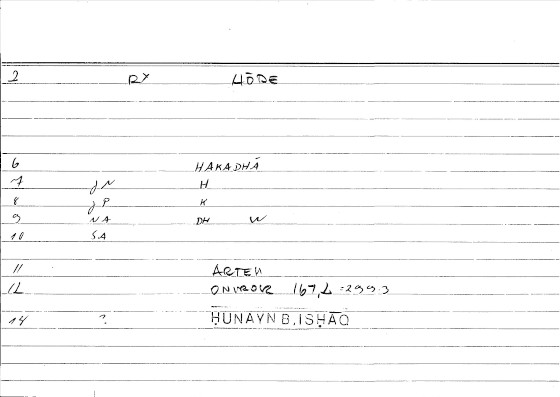 2 RX HŌDE
6 HAKADHĀ
7 JN H
8 JP K
9 NA DH W
10 SA
11 ARTEM
12 ONIROCR 167,2 = 299.3
14 ? ḤUNAYN B. ISḤĀQ